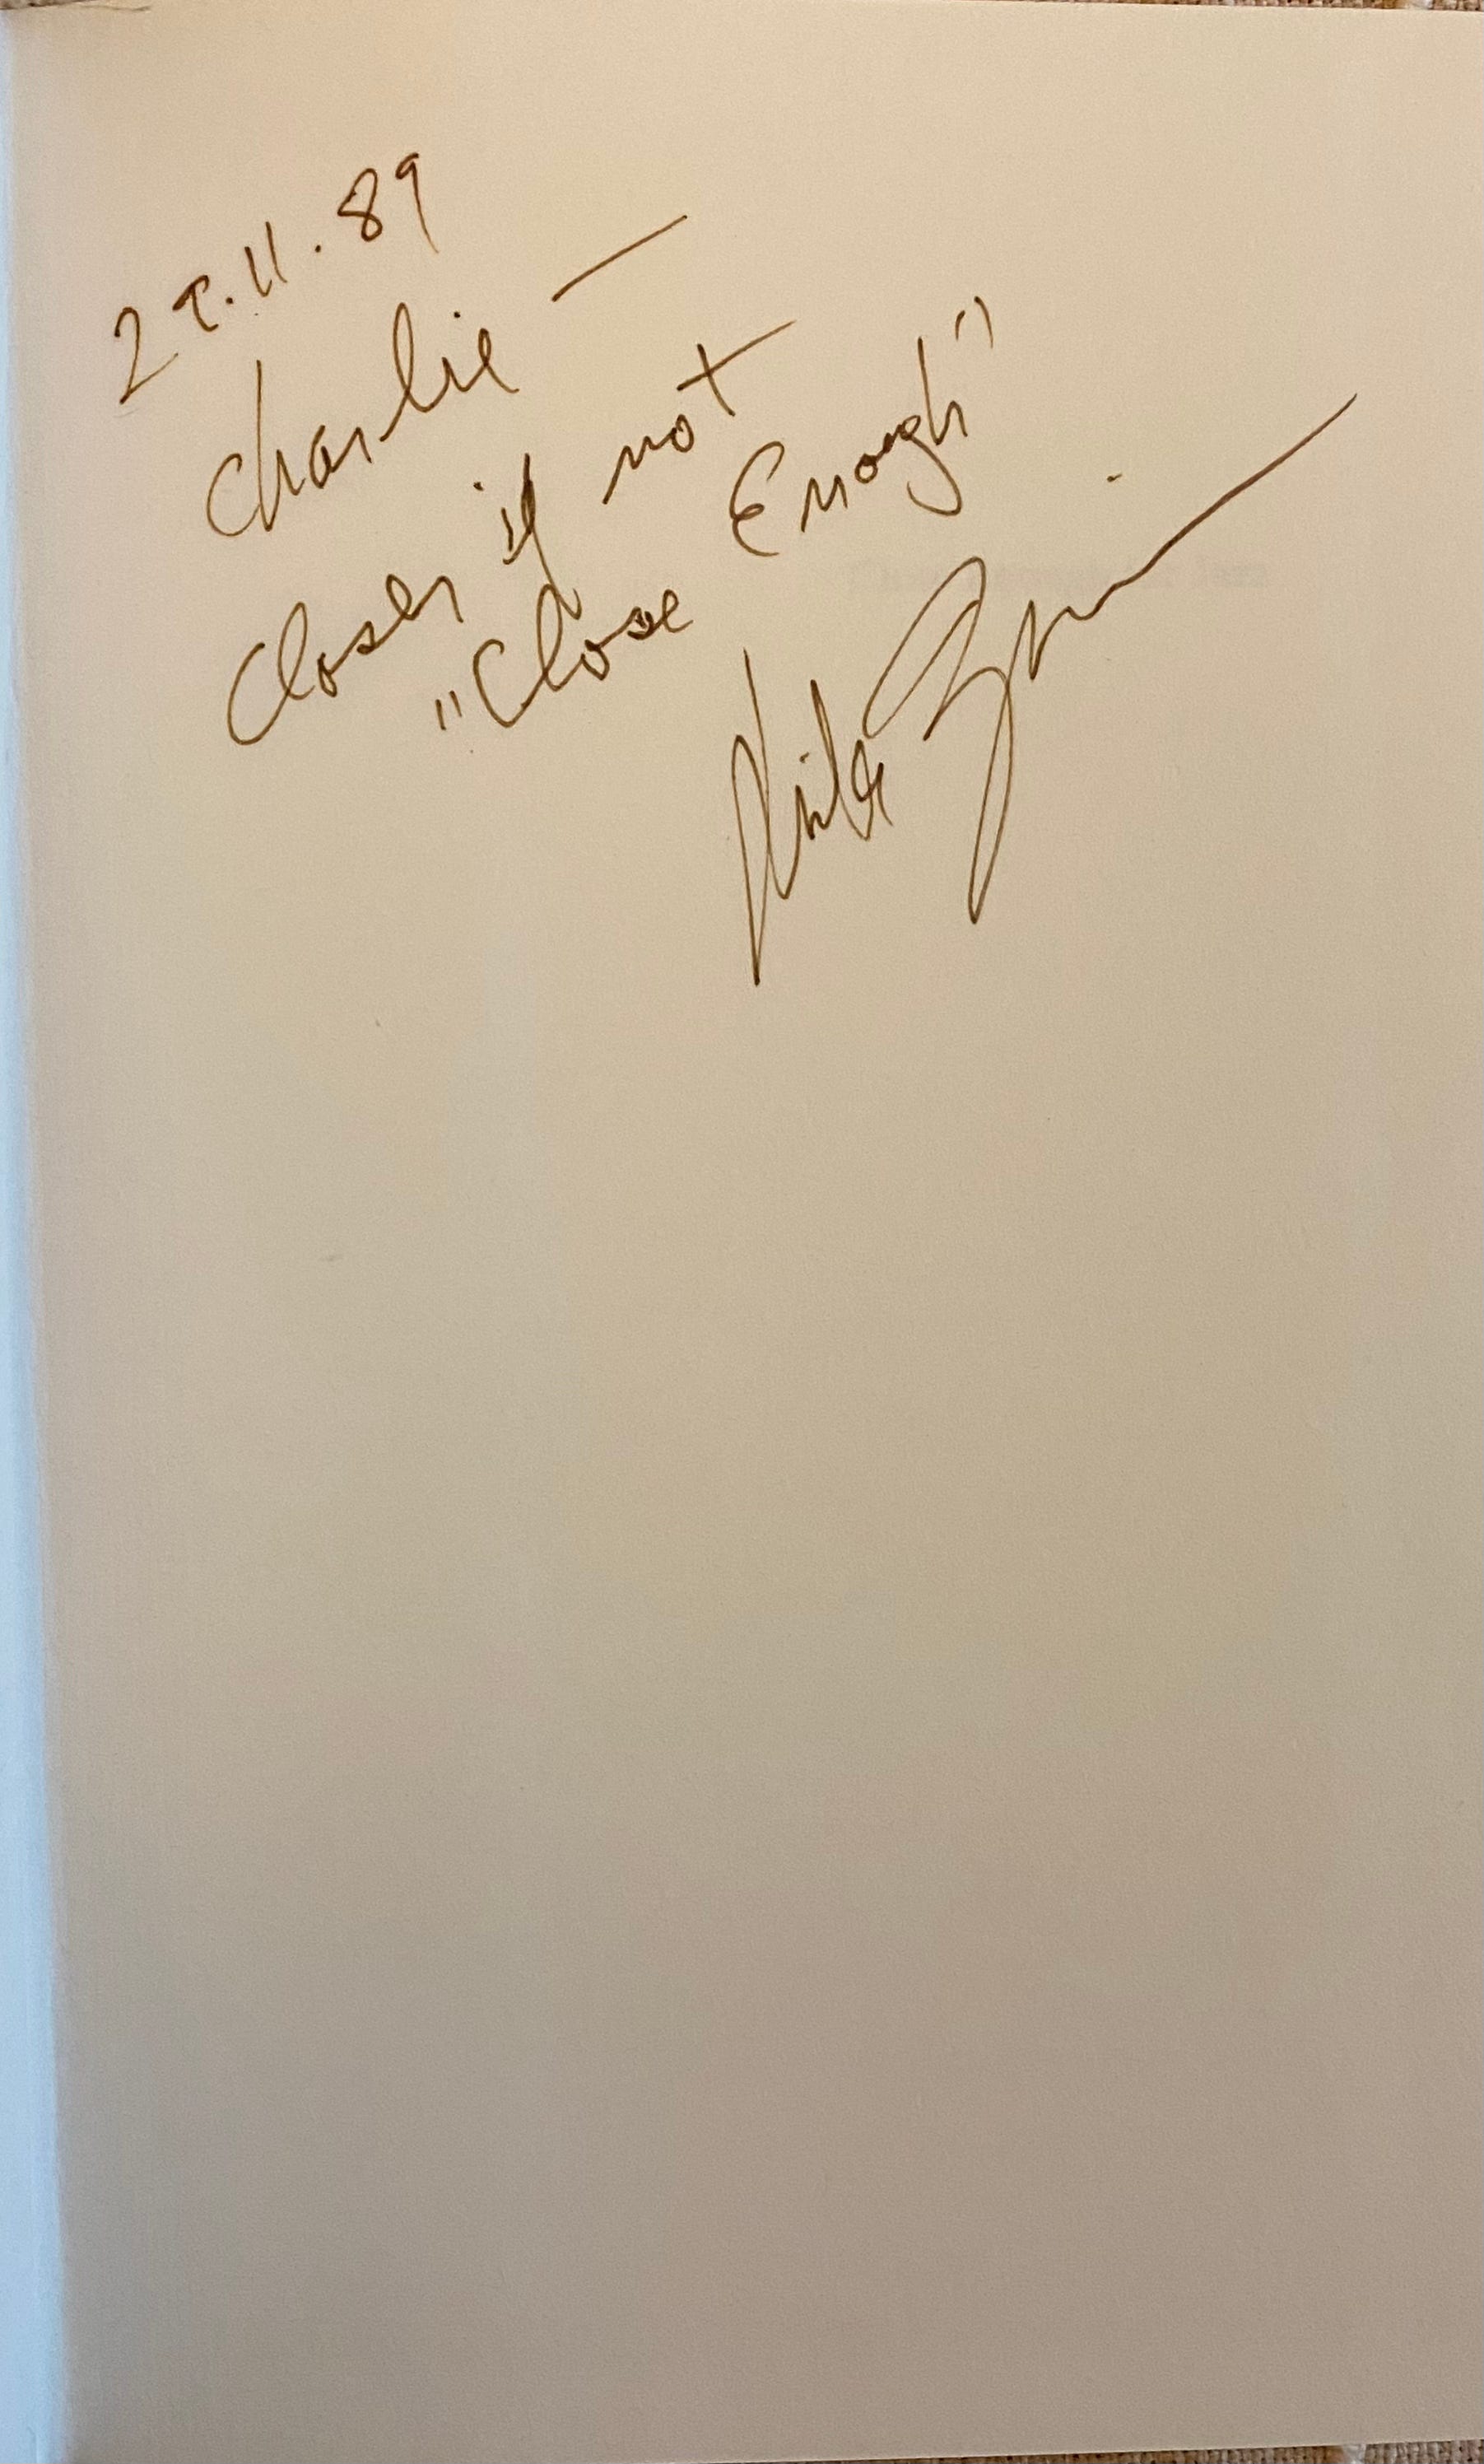 .11.89
Charlie —
Closer if not
"Close Enough"